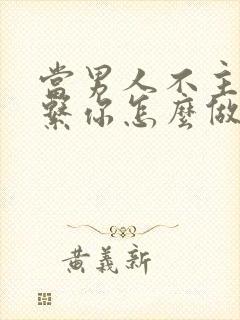 當男人不主
繫你怎麼做
黃義新